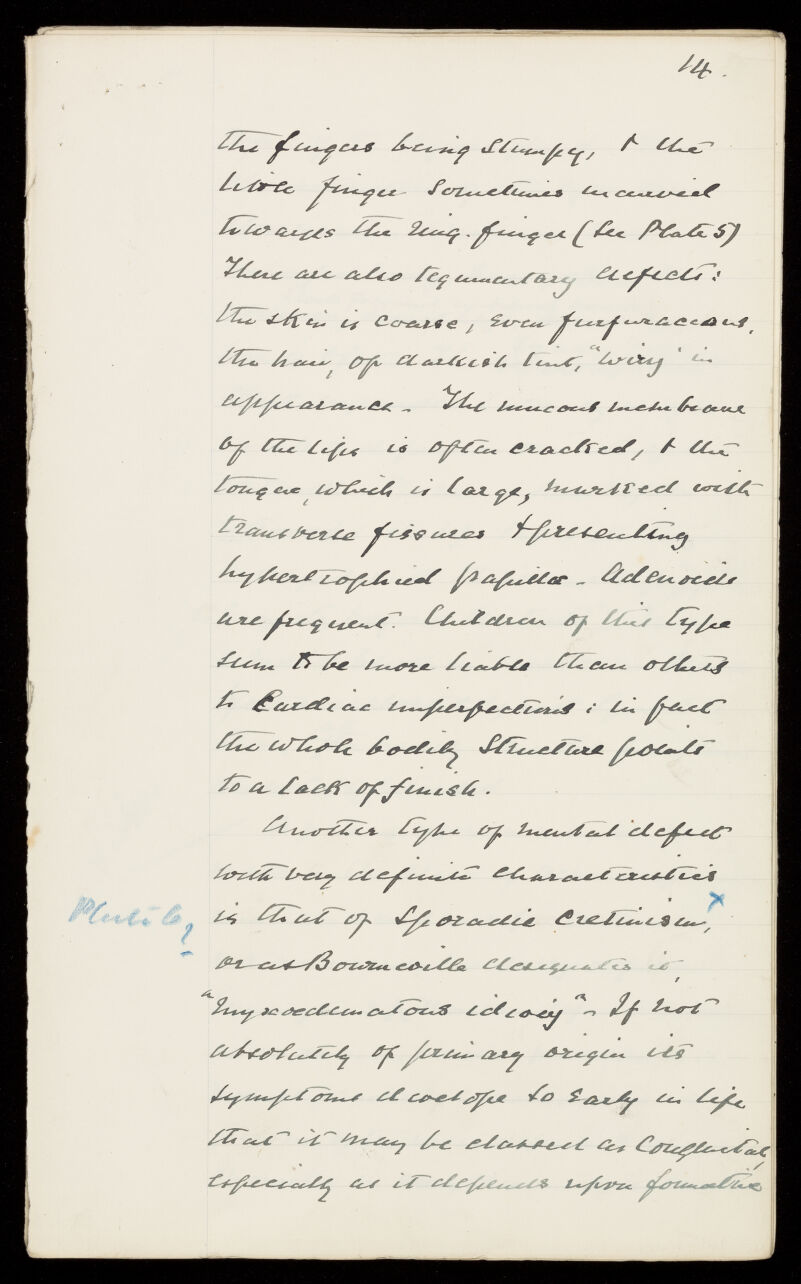 14.
the fingers being stumpy, & the
little finger sometimes incurved
towards the ring-finger (See Plate 5)
There are also tegumentary defects:
the skin is coarse, even furfuraceous,
the hair, of darkish tint, "wiry" in
appearance. The mucous membrane
of the lips is often cracked, & the
tongue, which is large, marked with
transverse fissures & presenting
hypertrophied papillae. Adenoids
are frequent. Children of this type
seem to be more liable than others
to Cardiac imperfections: in fact
the whole bodily structure points
to a lack of finish.
Another type of mental defect
with very definite characteristics
is that of Sporadic Cretinism, x
Plate
or as Bourneville designates it,
"Myxoedematous idiocy" - If not
absolutely of primary origin its
symptoms develope so early in life
that it may be classed as Congenital,
especially as it depends upon formative